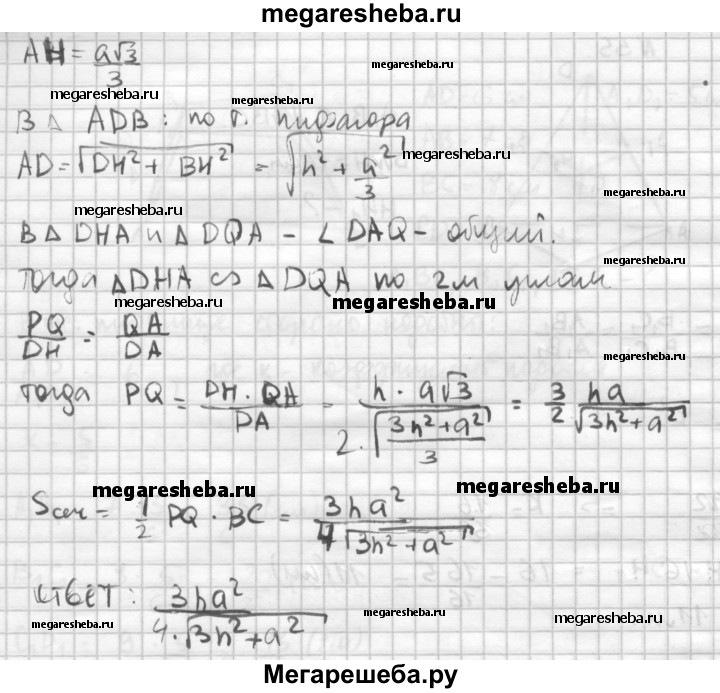 megaresheba.ru
AH = a√3/3
megaresheba.ru
megaresheba.ru
megaresheba.ru
В △ ADB : по т. пифагора
AD = √(DH² + BH²) = √(h² + a²/3)
megaresheba.ru
megaresheba.ru
В △ DHA и △ DQA – ∠ DAQ – общий.
тогда △DHA ∽ △ DQA по 2м углам
megaresheba.ru
megaresheba.ru
PQ/DH = QA/DA
megaresheba.ru
тогда PQ = DH · QA/DA = h · a√3/(2·√((3h²+a²)/3)) = 3/2 ha/√(3h²+a²)
megaresheba.ru
megaresheba.ru
Sсеч = 1/2 PQ · BC = 3ha²/(4√(3h²+a²))
Ответ : 3ha²/(4·√(3h²+a²))
megaresheba.ru
megaresheba.ru
megaresheba.ru
Мегарешеба.ру